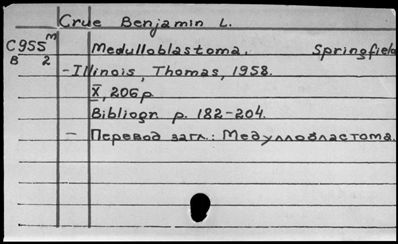 Crue Benjamin L.
C955 m Medulloblastoma. Springfield
B 2 - Illinois, Thomas, 1958.
X, 206 p.
Bibliogr p. 182-204.
- Перевод загл.: Медуллобластома.